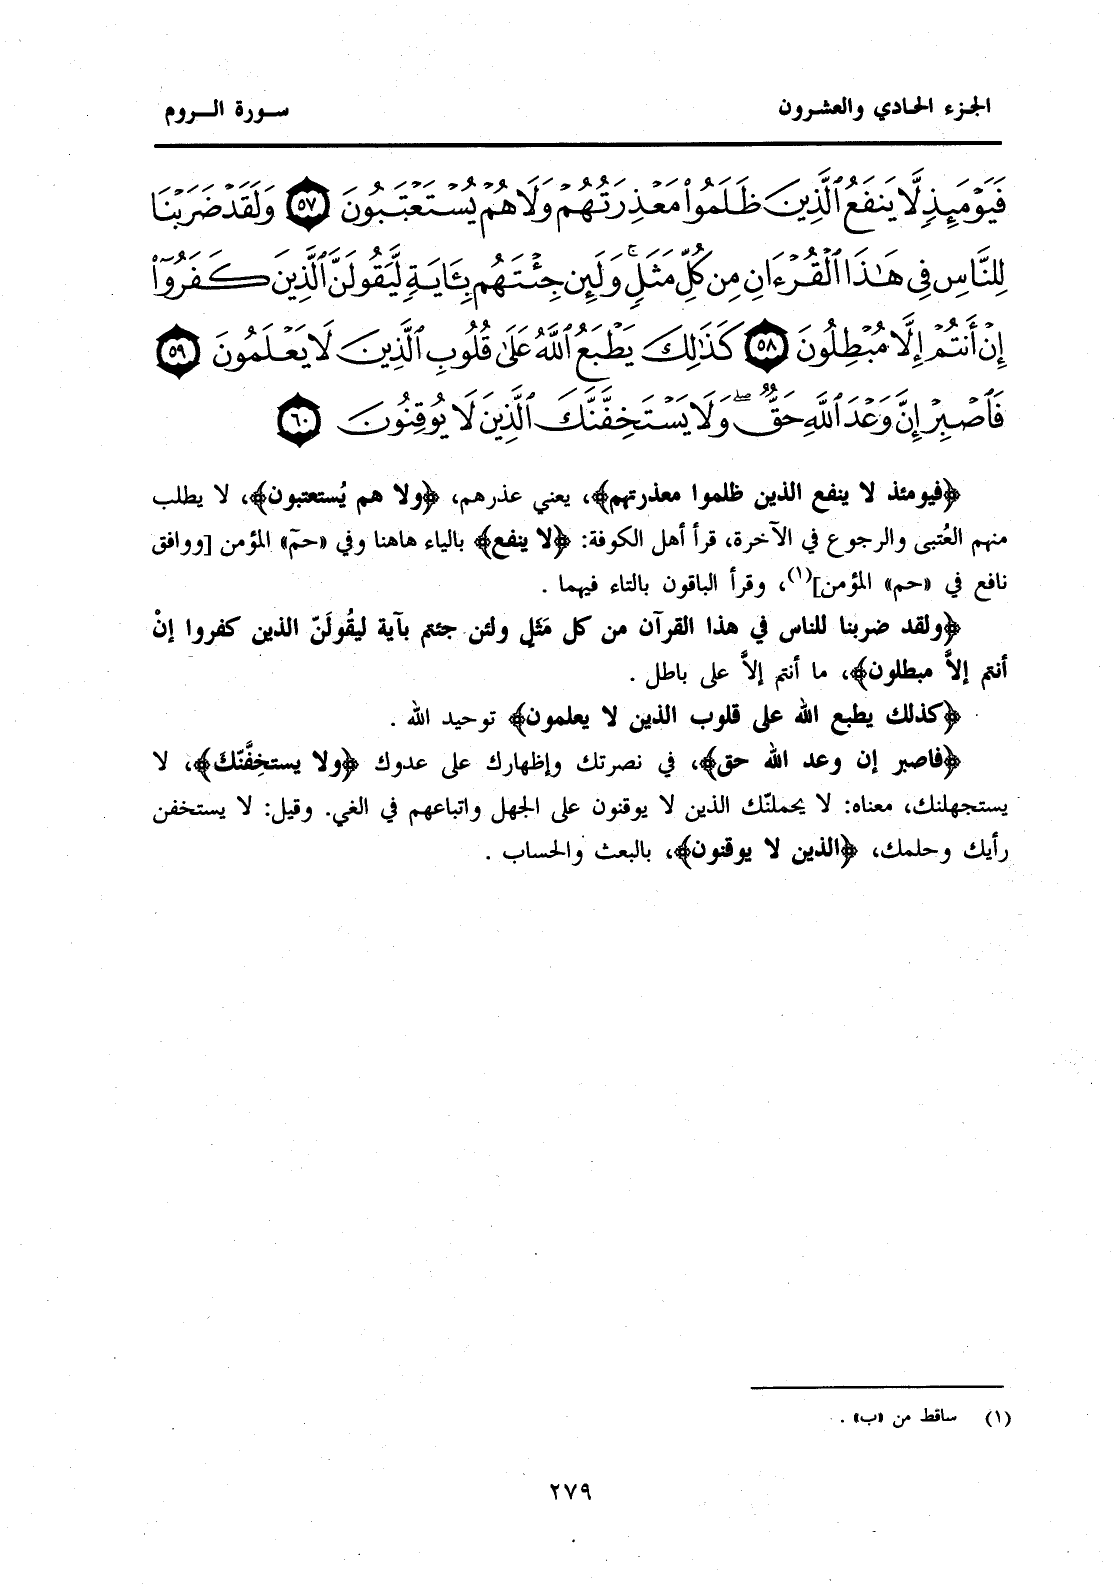 الجزء الحادي والعشرون
سورة الروم
فَيَوْمَئِذٍ لَّا يَنفَعُ ٱلَّذِينَ ظَلَمُوا۟ مَعْذِرَتُهُمْ وَلَا هُمْ يُسْتَعْتَبُونَ ٥٧ وَلَقَدْ ضَرَبْنَا
لِلنَّاسِ فِى هَٰذَا ٱلْقُرْءَانِ مِن كُلِّ مَثَلٍ ۚ وَلَئِن جِئْتَهُم بِـَٔايَةٍ لَّيَقُولَنَّ ٱلَّذِينَ كَفَرُوٓا۟
إِنْ أَنتُمْ إِلَّا مُبْطِلُونَ ٥٨ كَذَٰلِكَ يَطْبَعُ ٱللَّهُ عَلَىٰ قُلُوبِ ٱلَّذِينَ لَا يَعْلَمُونَ ٥٩
فَٱصْبِرْ إِنَّ وَعْدَ ٱللَّهِ حَقٌّ ۖ وَلَا يَسْتَخِفَّنَّكَ ٱلَّذِينَ لَا يُوقِنُونَ ٦٠
﴿فيومئذ لا ينفع الذين ظلموا معذرتهم﴾، يعني عذرهم، ﴿ولا هم يُستعتبون﴾، لا يطلب
منهم العُتبى والرجوع في الآخرة، قرأ أهل الكوفة: ﴿لا ينفع﴾ بالياء هاهنا وفي «حمّ» المؤمن [ووافق
نافع في «حم» المؤمن](١)، وقرأ الباقون بالتاء فيهما .
﴿ولقد ضربنا للناس في هذا القرآن من كل مَثَلٍ ولئن جئتم بآية ليقُولَنّ الذين كفروا إنْ
أنتم إلاَّ مبطلون﴾، ما أنتم إلاَّ على باطل .
﴿كذلك يطبع الله على قلوب الذين لا يعلمون﴾ توحيد الله .
﴿فاصبر إن وعد الله حق﴾، في نصرتك وإظهارك على عدوك ﴿ولا يستخِفَّنّكَ﴾، لا
يستجهلنك، معناه: لا يحملنّك الذين لا يوقنون على الجهل واتباعهم في الغي. وقيل: لا يستخفن
رأيك وحلمك، ﴿الذين لا يوقنون﴾، بالبعث والحساب .
(١) ساقط من «ب» .
٢٧٩